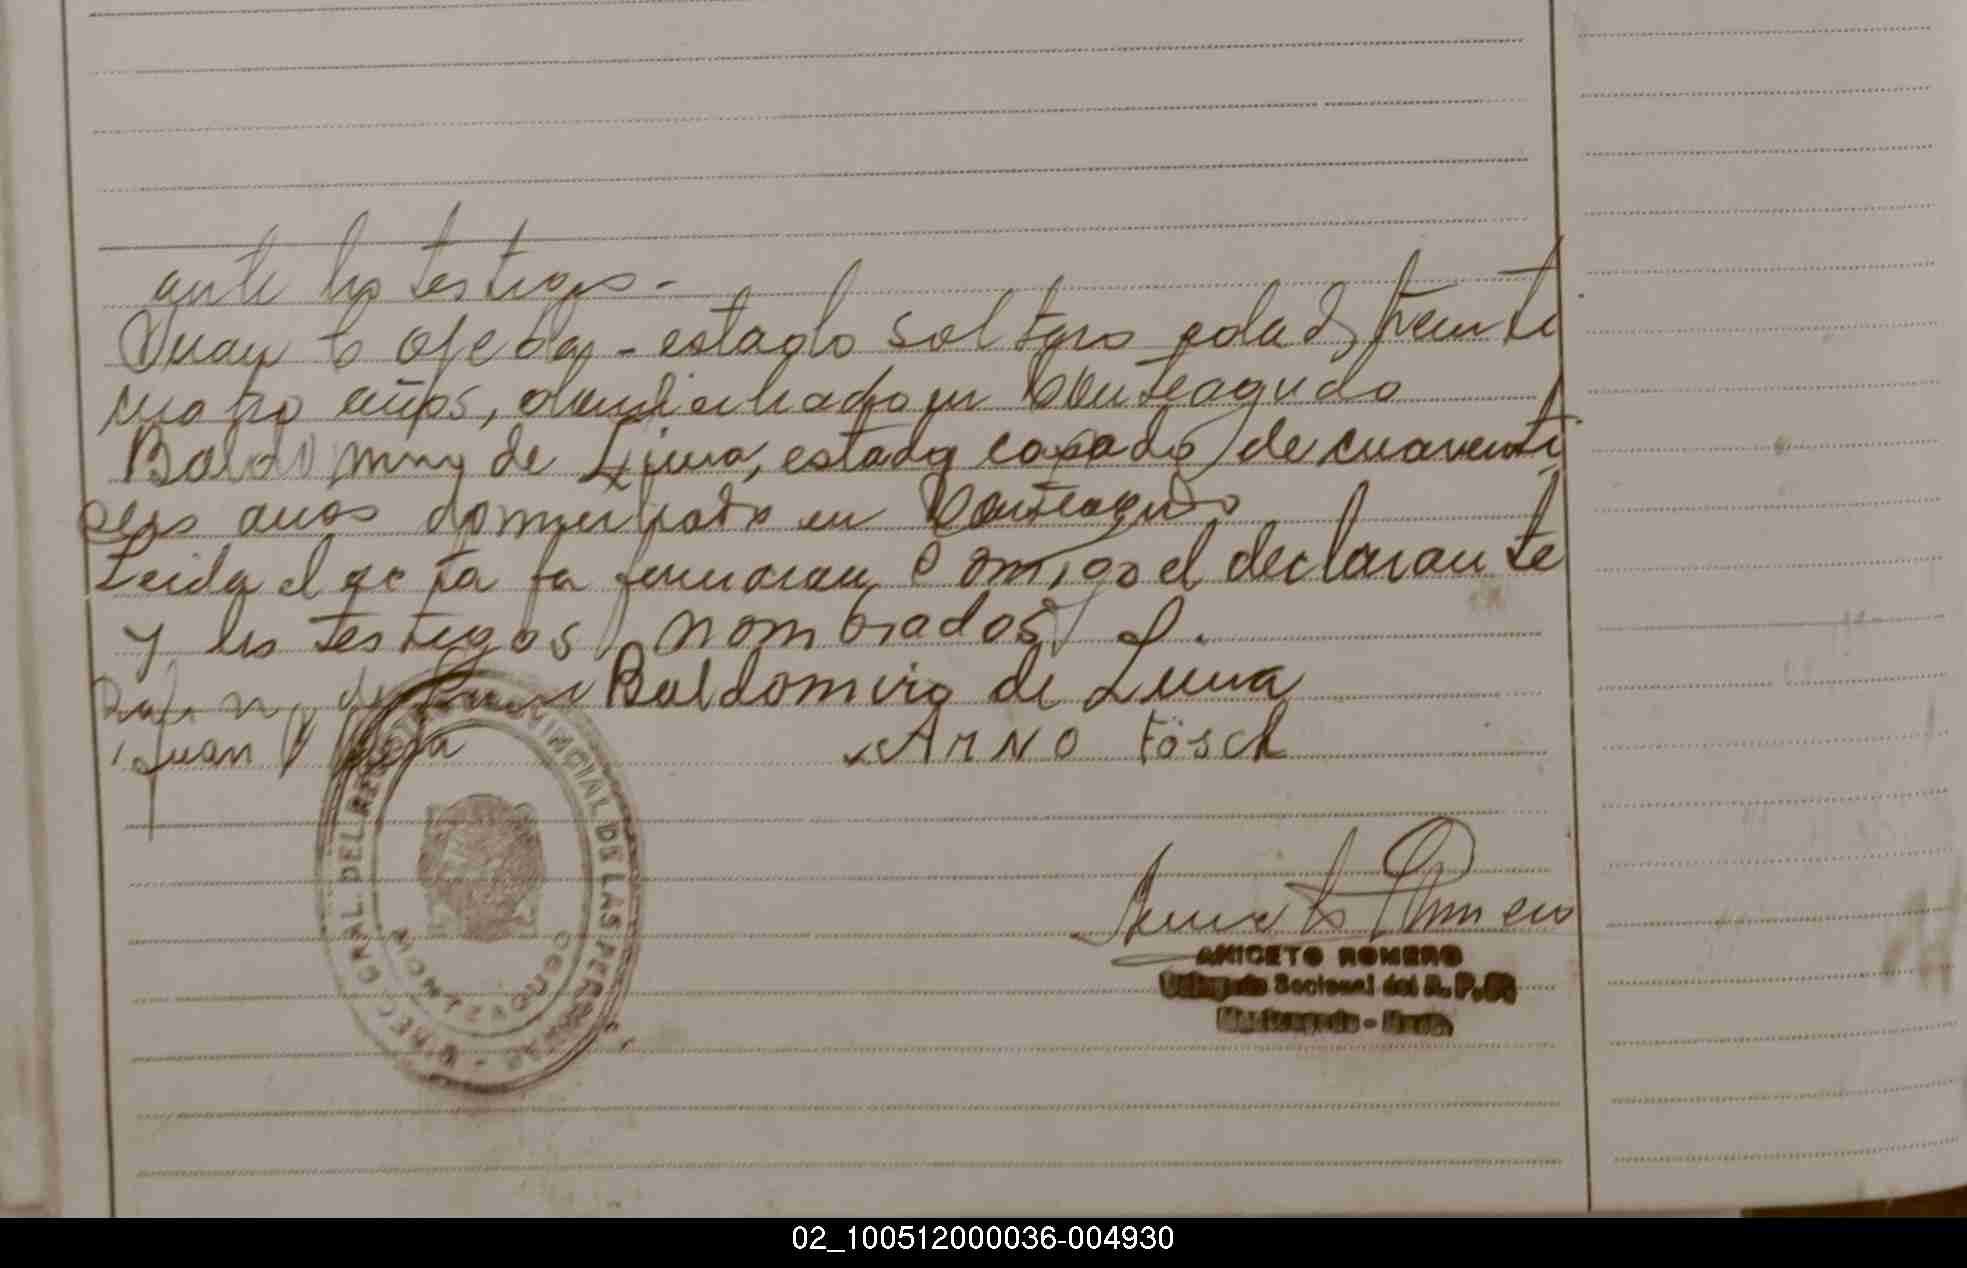 ante los testigos -
Juan B Ojeda - estado soltero edad, treinti
cuatro años, domiciliado en Monteagudo
Baldomiro de Lima, estado casado, de cuarenti
seis años domiciliado en Monteagudo
Leida el acta la firmaran conmigo el declarante
y los testigos nombrados
Baldomiro de Luna
Juan
ARNO Fösch
DIREC. GRAL. DEL REGISTRO PROVINCIAL DE LAS PERSONAS
ANICETO ROMERO
Delegado Seccional del R. P. P.
Monteagudo -
02_100512000036-004930